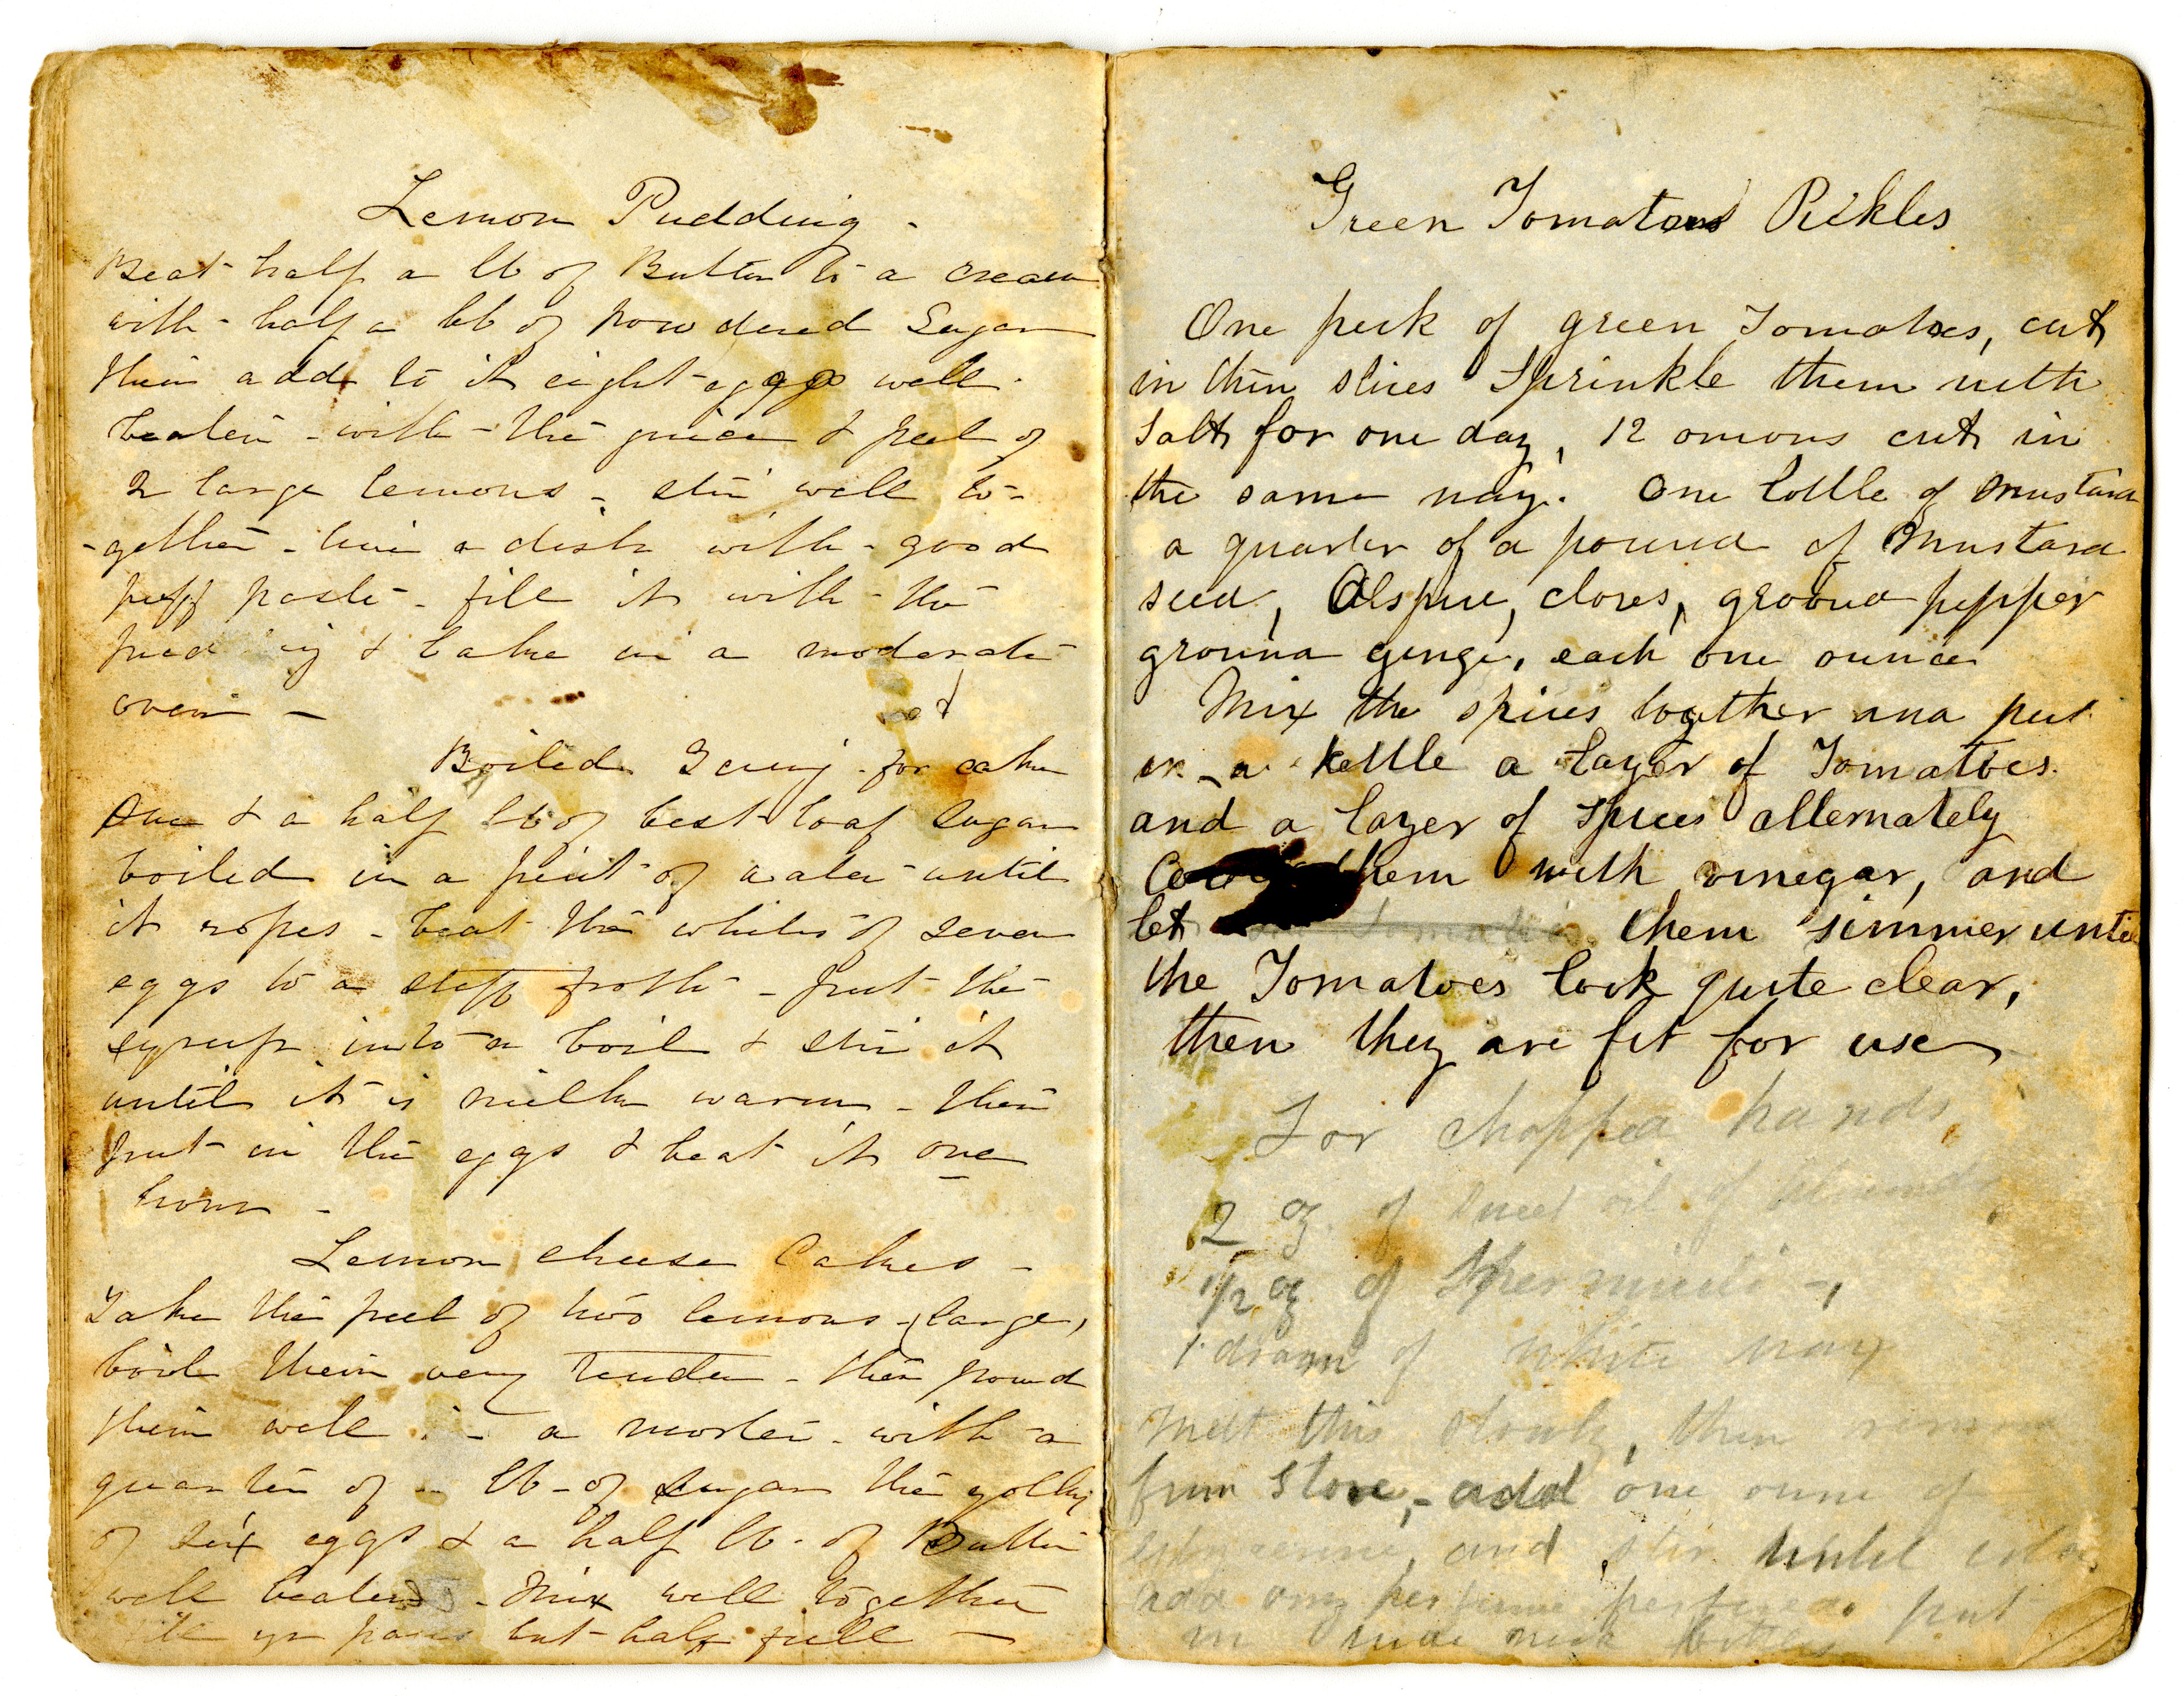 Lemon Pudding -
Beat half a lb of Butter to a cream
with - half a lb of powdered Sugar
then add to it eight eggs well
beaten - with - the juice & peel of
2 large lemons - stir well to-
-gether - line a dish with - good
puff paste - fill it with - the
pud ing & bake in a moderate
oven -
Boiled Iceing - for cake
One & a half lb of best loaf sugar
boiled in a pint of water until
it ropes - beat the whites of seven
eggs to a stiff froth - put the
syrup into a boil & stir it
until it is milk warm - then
put in the eggs & beat it one
hour -
Lemon cheese Cakes -
Take the peel of two lemons - large,
boil them very tender - then pound
them well a mortar - with a
quarter of lb - of sugar the yolks
of six eggs & a half lb - of Butter
well beaten - Mix well together
fill yr pans but half full -
Green Tomatoes Pickles
One peck of green Tomatoes, cut
in thin slices Sprinkle them with
Salt for one day, 12 onions cut in
the same way. One bottle of mustard
a quarter of a pound of Mustard
seed, Alspice, cloves, ground pepper
ground ginger, each one ounce
Mix the spices together and put
in a kettle a layer of Tomatoes.
and a layer of spices alternately
Cover them with vinegar, and
let them simmer until
the Tomatoes look quite clear,
then they are fit for use
For chapped hands,
2 oz of sweet oil of almonds
1/2 oz of Spermiceti -,
1 dram of white wax
Melt this slowly, then remove
from Stove, - add one ounce of
glycerine, and stir until cold.
add any perfume put
in wide neck bottles